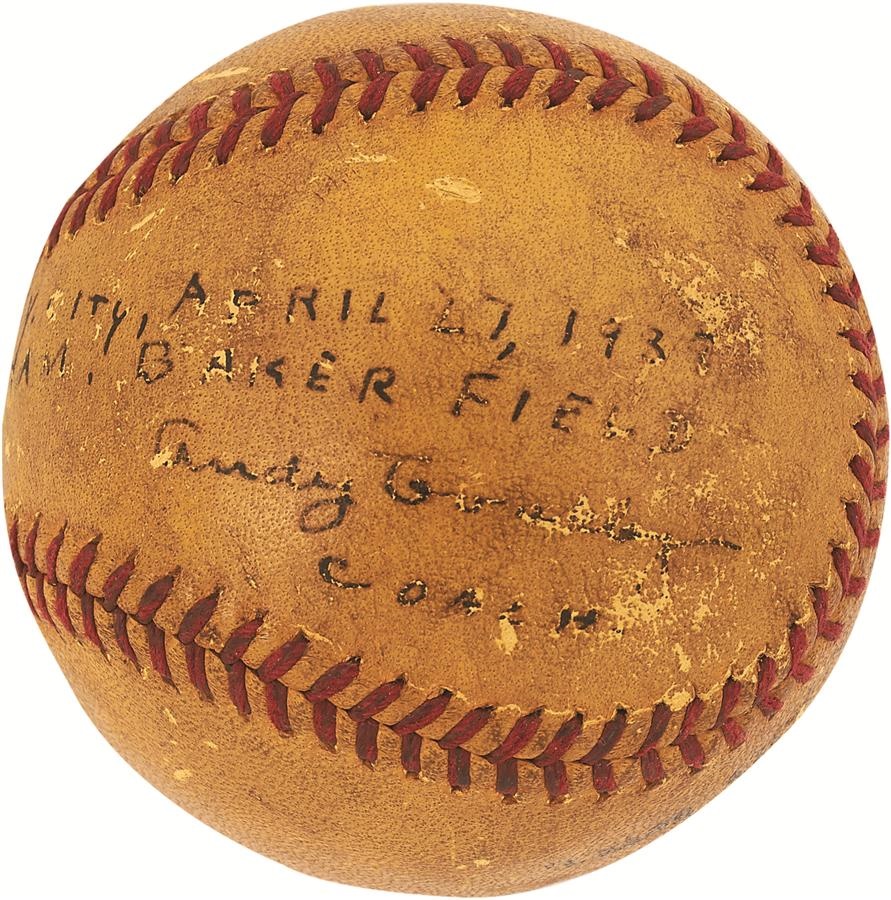 K CITY, APRIL 27, 1937
AM. BAKER FIELD
Andy Coakley
COACH